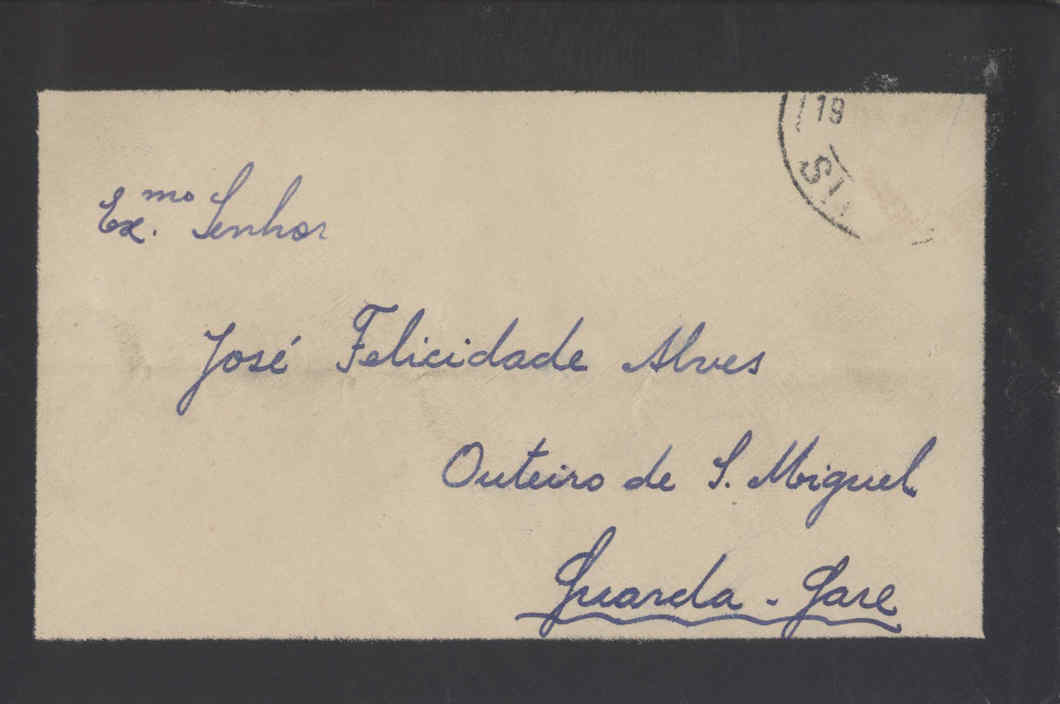 19
Ex.mo Senhor
José Felicidade Alves
Outeiro de S. Miguel
Guarda - Gare